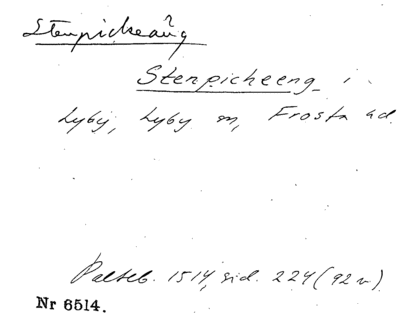 Stenpickeäng ?
Stenpicheeng i
Lyby, Lyby sn, Frosta hd.
Palteb. 1514, sid. 224 (92 v)
Nr 6514.